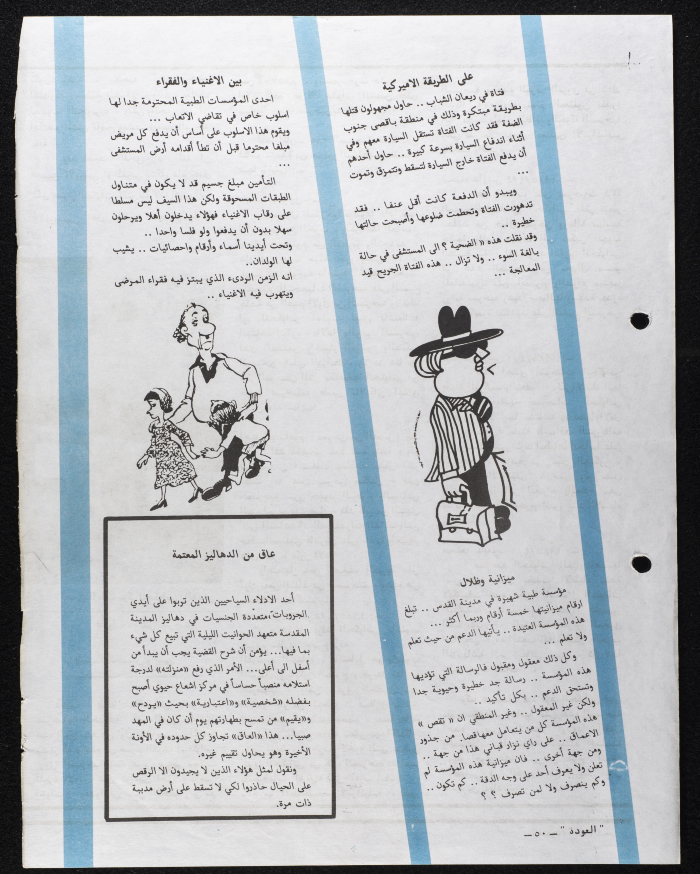 على الطريقة الاميركية
فتاة في ريعان الشباب .. حاول مجهولون قتلها
بطريقة مبتكرة وذلك في منطقة باقصى جنوب
الضفة فقد كانت الفتاة تستقل السيارة معهم وفي
أثناء اندفاع السيارة بسرعة كبيرة .. حاول أحدهم
أن يدفع الفتاة خارج السيارة لتسقط وتتمزق وتموت
...
ويبدو أن الدفعة كانت أقل عنفا .. فقد
تدهورت الفتاة وتحطمت ضلوعها وأصبحت حالتها
خطيرة ..
وقد نقلت هذه « الضحية ؟ الى المستشفى في حالة
بالغة السوء .. ولا تزال .. هذه الفتاة الجريح قيد
المعالجة ...
ميزانية وظلال
مؤسسة طبية شهيرة في مدينة القدس .. تبلغ
ارقام ميزانيتها خمسة أرقام وربما أكثر ...
هذه المؤسسة العتيدة .. يأتيها الدعم من حيث تعلم
ولا تعلم ...
وكل ذلك معقول ومقبول فالرسالة التي تؤديها
هذه المؤسسة .. رسالة جد خطيرة وحيوية جدا
وتستحق الدعم .. بكل تأكيد ..
ولكن غير المعقول .. وغير المنطقي ان « تقص »
هذه المؤسسة كل من يتعامل معها قصا من جذور
الاعماق .. على رأي نزار قباني هذا من جهة ..
ومن جهة أخرى .. فان ميزانية هذه المؤسسة لم
تعلن ولا يعرف أحد على وجه الدقة .. كم تكون ..
وكم ينصرف ولا لمن تصرف ؟ ؟
بين الاغنياء والفقراء
احدى المؤسسات الطبية المحترمة جدا لها
اسلوب خاص في تقاضي الاتعاب ...
ويقوم هذا الاسلوب على أساس أن يدفع كل مريض
مبلغا محترما قبل أن تطأ أقدامه أرض المستشفى
...
التأمين مبلغ جسيم قد لا يكون في متناول
الطبقات المسحوقة ولكن هذا السيف ليس مسلطا
على رقاب الاغنياء فهؤلاء يدخلون أهلا ويرحلون
سهلا بدون أن يدفعوا ولو فلسا واحدا ..
وتحت أيدينا أسماء وأرقام واحصائيات .. يشيب
لها الولدان..
انه الزمن الردىء الذي يبتز فيه فقراء المرضى
ويتهرب فيه الاغنياء ..
عاق من الدهاليز المعتمة
أحد الادلاء السياحيين الذين تربوا على أيدي
الجروبات متعددة الجنسيات في دهاليز المدينة
المقدسة متعهد الحوانيت الليلية التي تبيع كل شيء
بما فيها... يؤمن أن شرح القضية يجب أن يبدأ من
أسفل الى أعلى... الأمر الذي رفع «منزلته» لدرجة
استلامه منصباً حساساً في مركز اشعاع حيوي أصبح
بفضله «شخصية» و«اعتبارية» بحيث «يردح»
و«يقيم» من تمسح بطهارتهم يوم أن كان في المهد
صبيا... هذا «العاق» تجاوز كل حدوده في الأونة
الأخيرة وهو يحاول تقييم غيره.
ونقول لمثل هؤلاء الذين لا يجيدون الا الرقص
على الحبال حاذروا لكي لا تسقط على أرض مدببة
ذات مرة.
" العودة " ــ ٥٠ ــ